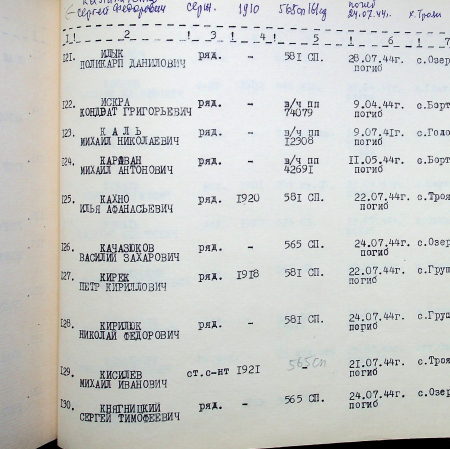 Сергей Федорович серж. 1910 565сп 161сд погиб 24.07.44г.
1 ! 2 ! 3 ! 4 ! 5 ! 6 ! 7
121. ИЛЫК ряд. - 581 СП. 28.07.44г. с.Озер
ПОЛИКАРП ДАНИЛОВИЧ погиб
122. ИСКРА ряд. - в/ч пп 9.04.44г. с.Борт
КОНДРАТ ГРИГОРЬЕВИЧ 74079 погиб
123. К А Л Ь ряд. - в/ч пп 9.07.41г. с.Голо
МИХАИЛ НИКОЛАЕВИЧ 12308 погиб
124. КАРАВАН ряд. - в/ч пп 11.05.44г. с.Борт
МИХАИЛ АНТОНОВИЧ 42691 погиб
125. КАХНО ряд. 1920 581 СП. 22.07.44г. с.Троя
ИЛЬЯ АФАНАСЬЕВИЧ погиб
126. КАЧАЗЮКОВ ряд. - 565 СП. 24.07.44г. с.Озер
ВАСИЛИЙ ЗАХАРОВИЧ погиб
127. КИРЕК ряд. 1918 581 СП. 22.07.44г. с.Груш
ПЕТР КИРИЛЛОВИЧ погиб
128. КИРИЛЮК ряд. - 581 СП. 24.07.44г. с.Груш
НИКОЛАЙ ФЕДОРОВИЧ погиб
129. КИСИЛЕВ ст.с-нт 1921 565сп - 21.07.44г. с.Троя
МИХАИЛ ИВАНОВИЧ погиб
130. КНЯГНИЦКИЙ ряд. - 565 СП. 24.07.44г. с.Озер
СЕРГЕЙ ТИМОФЕЕВИЧ погиб